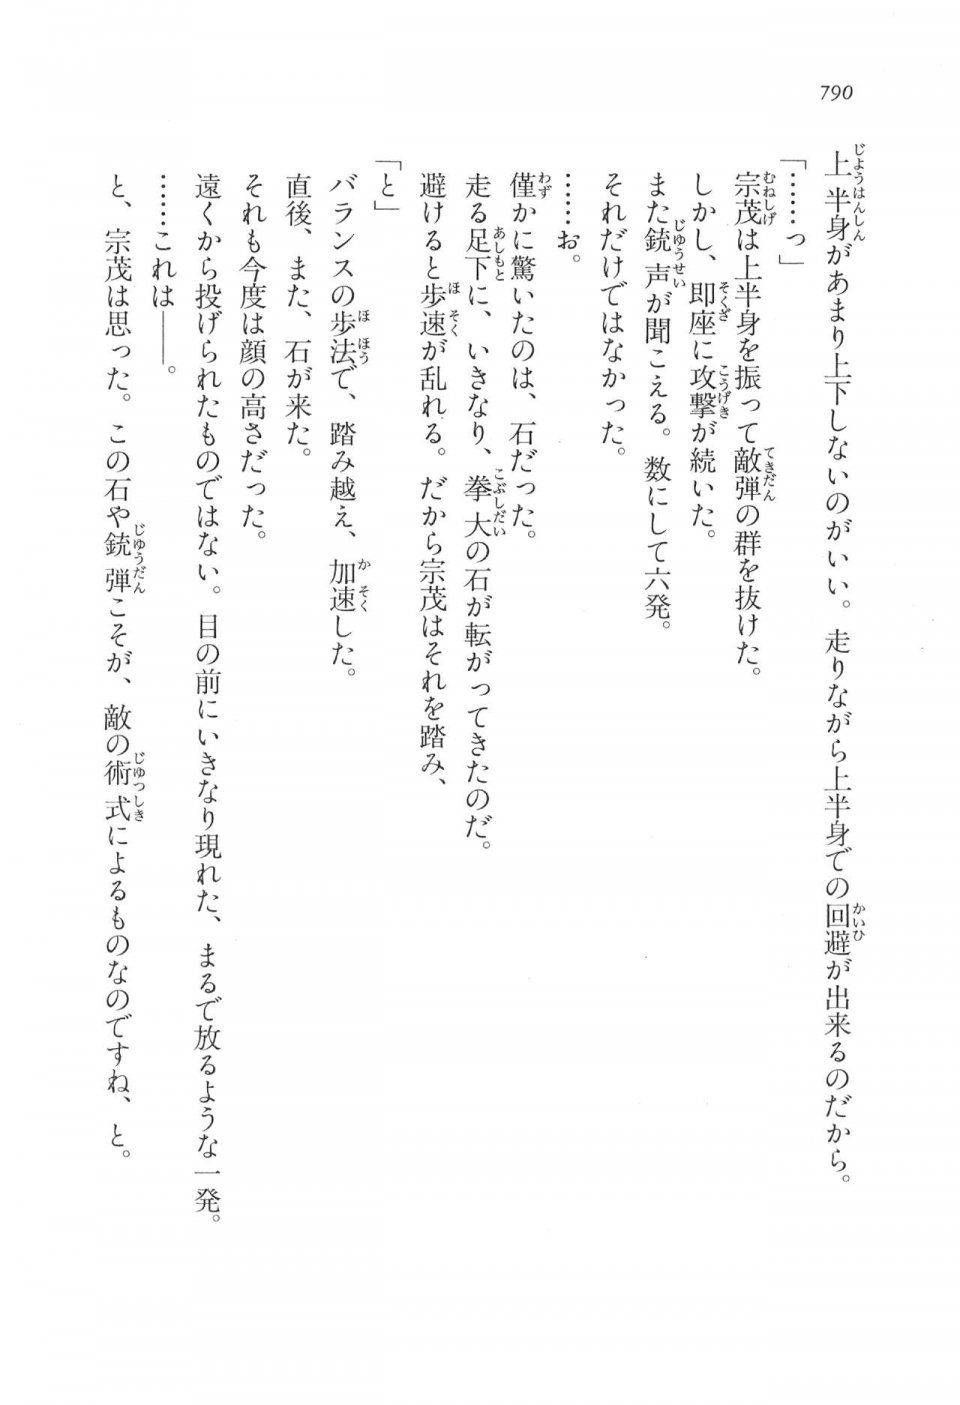 790
上半身があまり上下しないのがいい。走りながら上半身での回避が出来るのだから。
「……っ」
宗茂は上半身を振って敵弾の群を抜けた。
しかし、即座に攻撃が続いた。
また銃声が聞こえる。数にして六発。
それだけではなかった。
……お。
僅かに驚いたのは、石だった。
走る足下に、いきなり、拳大の石が転がってきたのだ。
避けると歩速が乱れる。だから宗茂はそれを踏み、
「と」
バランスの歩法で、踏み越え、加速した。
直後、また、石が来た。
それも今度は顔の高さだった。
遠くから投げられたものではない。目の前にいきなり現れた、まるで放るような一発。
……これは――。
と、宗茂は思った。この石や銃弾こそが、敵の術式によるものなのですね、と。